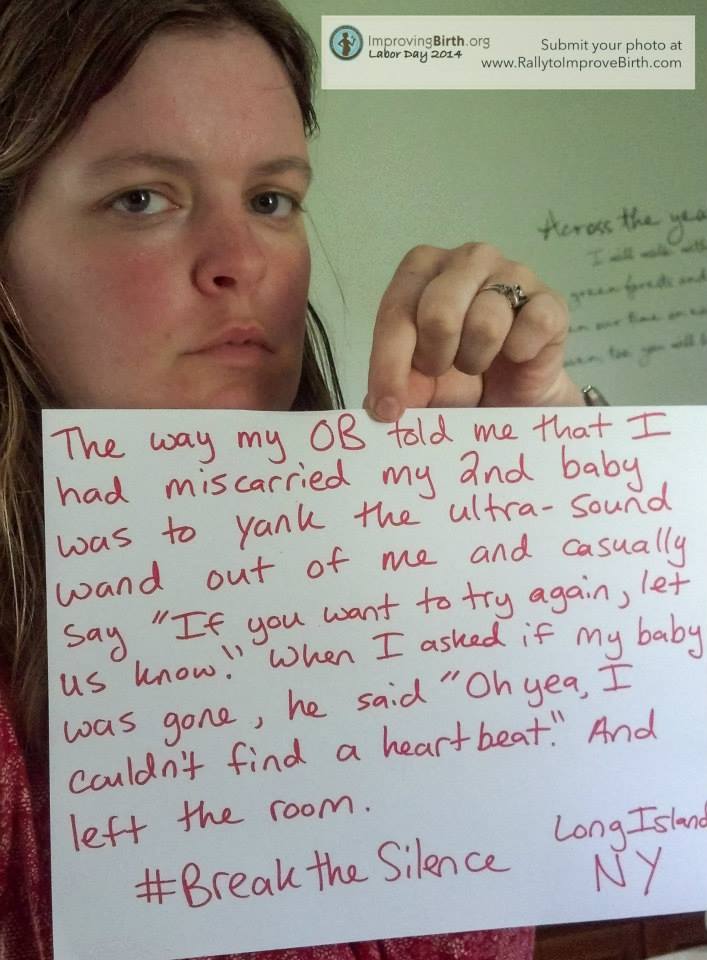 ImprovingBirth.org
Labor Day 2014
Submit your photo at
www.RallytoImproveBirth.com
Across the yea
I will walk with
green forests and
our time on ea
too, you will b
The way my OB told me that I
had miscarried my 2nd baby
was to yank the ultra-sound
wand out of me and casually
say "If you want to try again, let
us know." When I asked if my baby
was gone, he said "Oh yea, I
couldn't find a heartbeat." And
left the room.
#Break the Silence
Long Island
NY